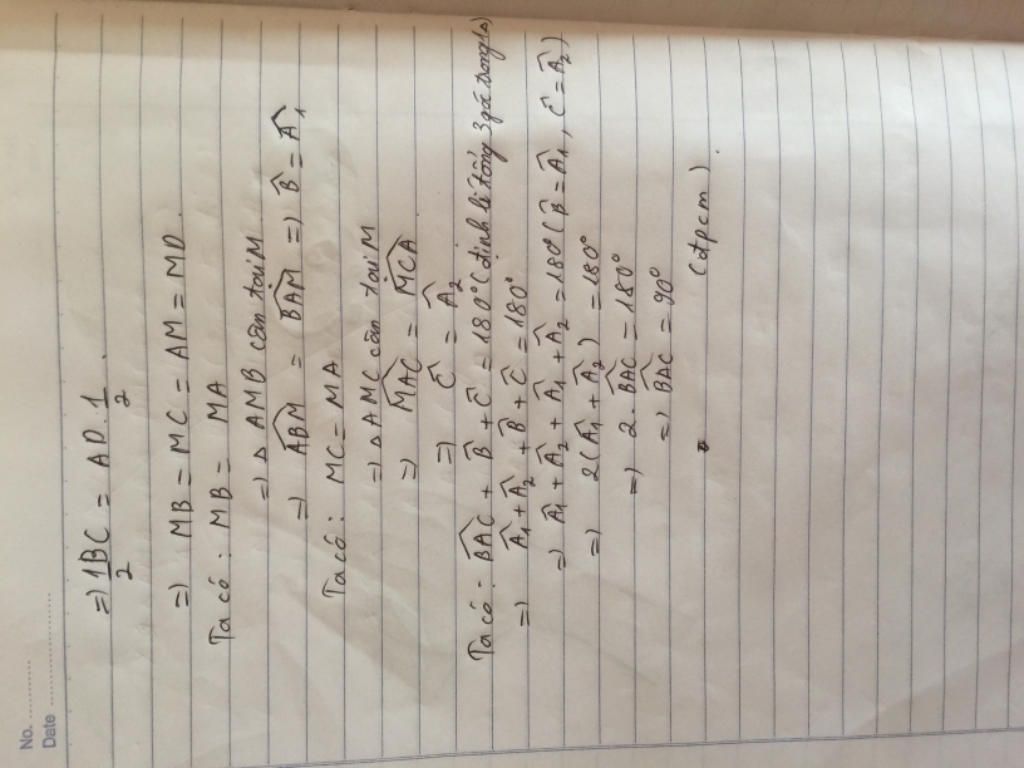 No. ............
Date ....................
=) 1BC/2 = AD. 1/2
=) MB = MC = AM = MD
Ta có : MB = MA
=) △ AMB cân tại M
=) \widehat{ABM} = \widehat{BAM} =) \widehat{B} = \widehat{A}₁
Ta có: MC = MA
=) △ AMC cân tại M
=) \widehat{MAC} = \widehat{MCA}
=) \widehat{C} = \widehat{A}₂
Ta có : \widehat{BAC} + \widehat{B} + \widehat{C} = 180° (định lí tổng 3 góc trong △)
=) \widehat{A}₁ + \widehat{A}₂ + \widehat{B} + \widehat{C} = 180°
=) \widehat{A}₁ + \widehat{A}₂ + \widehat{A}₁ + \widehat{A}₂ = 180° ( \widehat{B} = \widehat{A}₁ , \widehat{C} = \widehat{A}₂ )
=) 2(\widehat{A}₁ + \widehat{A}₂ ) = 180°
=) 2. \widehat{BAC} = 180°
=) \widehat{BAC} = 90°
(đpcm) .